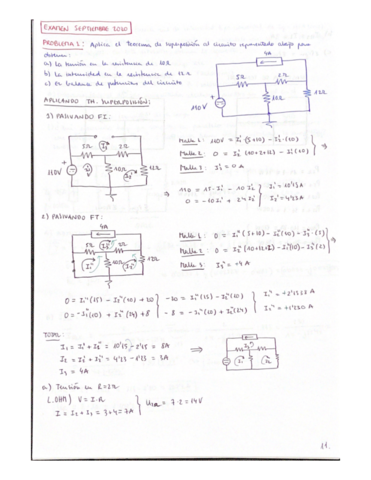 EXAMEN SEPTIEMBRE 2020
PROBLEMA 1: Aplica el Teorema de superposición al circuito representado abajo para
obtener:
a) La tensión en la resistencia de
b) La intensidad en la resistencia de 12Ω
c) El balance de potencias del circuito
4A
5Ω 2Ω
10Ω 12Ω
110V
APLICANDO TH. SUPERPOSICIÓN:
1) PASIVANDO FI:
5Ω 2Ω
10Ω 12Ω
110V
Malla 1: 110V = I1' (5+10) - I2' (10)
Malla 2: 0 = I2' (10+2+12) - I1' (10)
Malla 3: I3' = 0A
110 = 15·I1' - 10 I2'
0 = -10 I1' + 24 I2'
2) PASIVANDO FT:
4A
5Ω 2Ω
10Ω 12Ω
Malla 1: 0 = I1'' (5+10) - I2'' (10) - I3'' (5)
Malla 2: 0 = I2'' (10+12+2) - I1'' (10) - I3'' (2)
Malla 3: I3'' = -4A
0 = I1'' (15) - I2'' (10) + 20
0 = -I1'' (10) + I2'' (24) + 8
-20 = I1'' (15) - I2'' (10)
-8 = -I1'' (10) + I2'' (24)
TOTAL:
I1 = I1' + I1'' = 10'15 - 2'15 = 8A
I2 = I2' + I2'' = 4'23 - 1'23 = 3A
I3 = 4A
a) Tensión en R = 2Ω
L. OHM) V = I·R
I = I2 + I3 = 3 + 4 = 7A
U2Ω = 7·2 = 14V